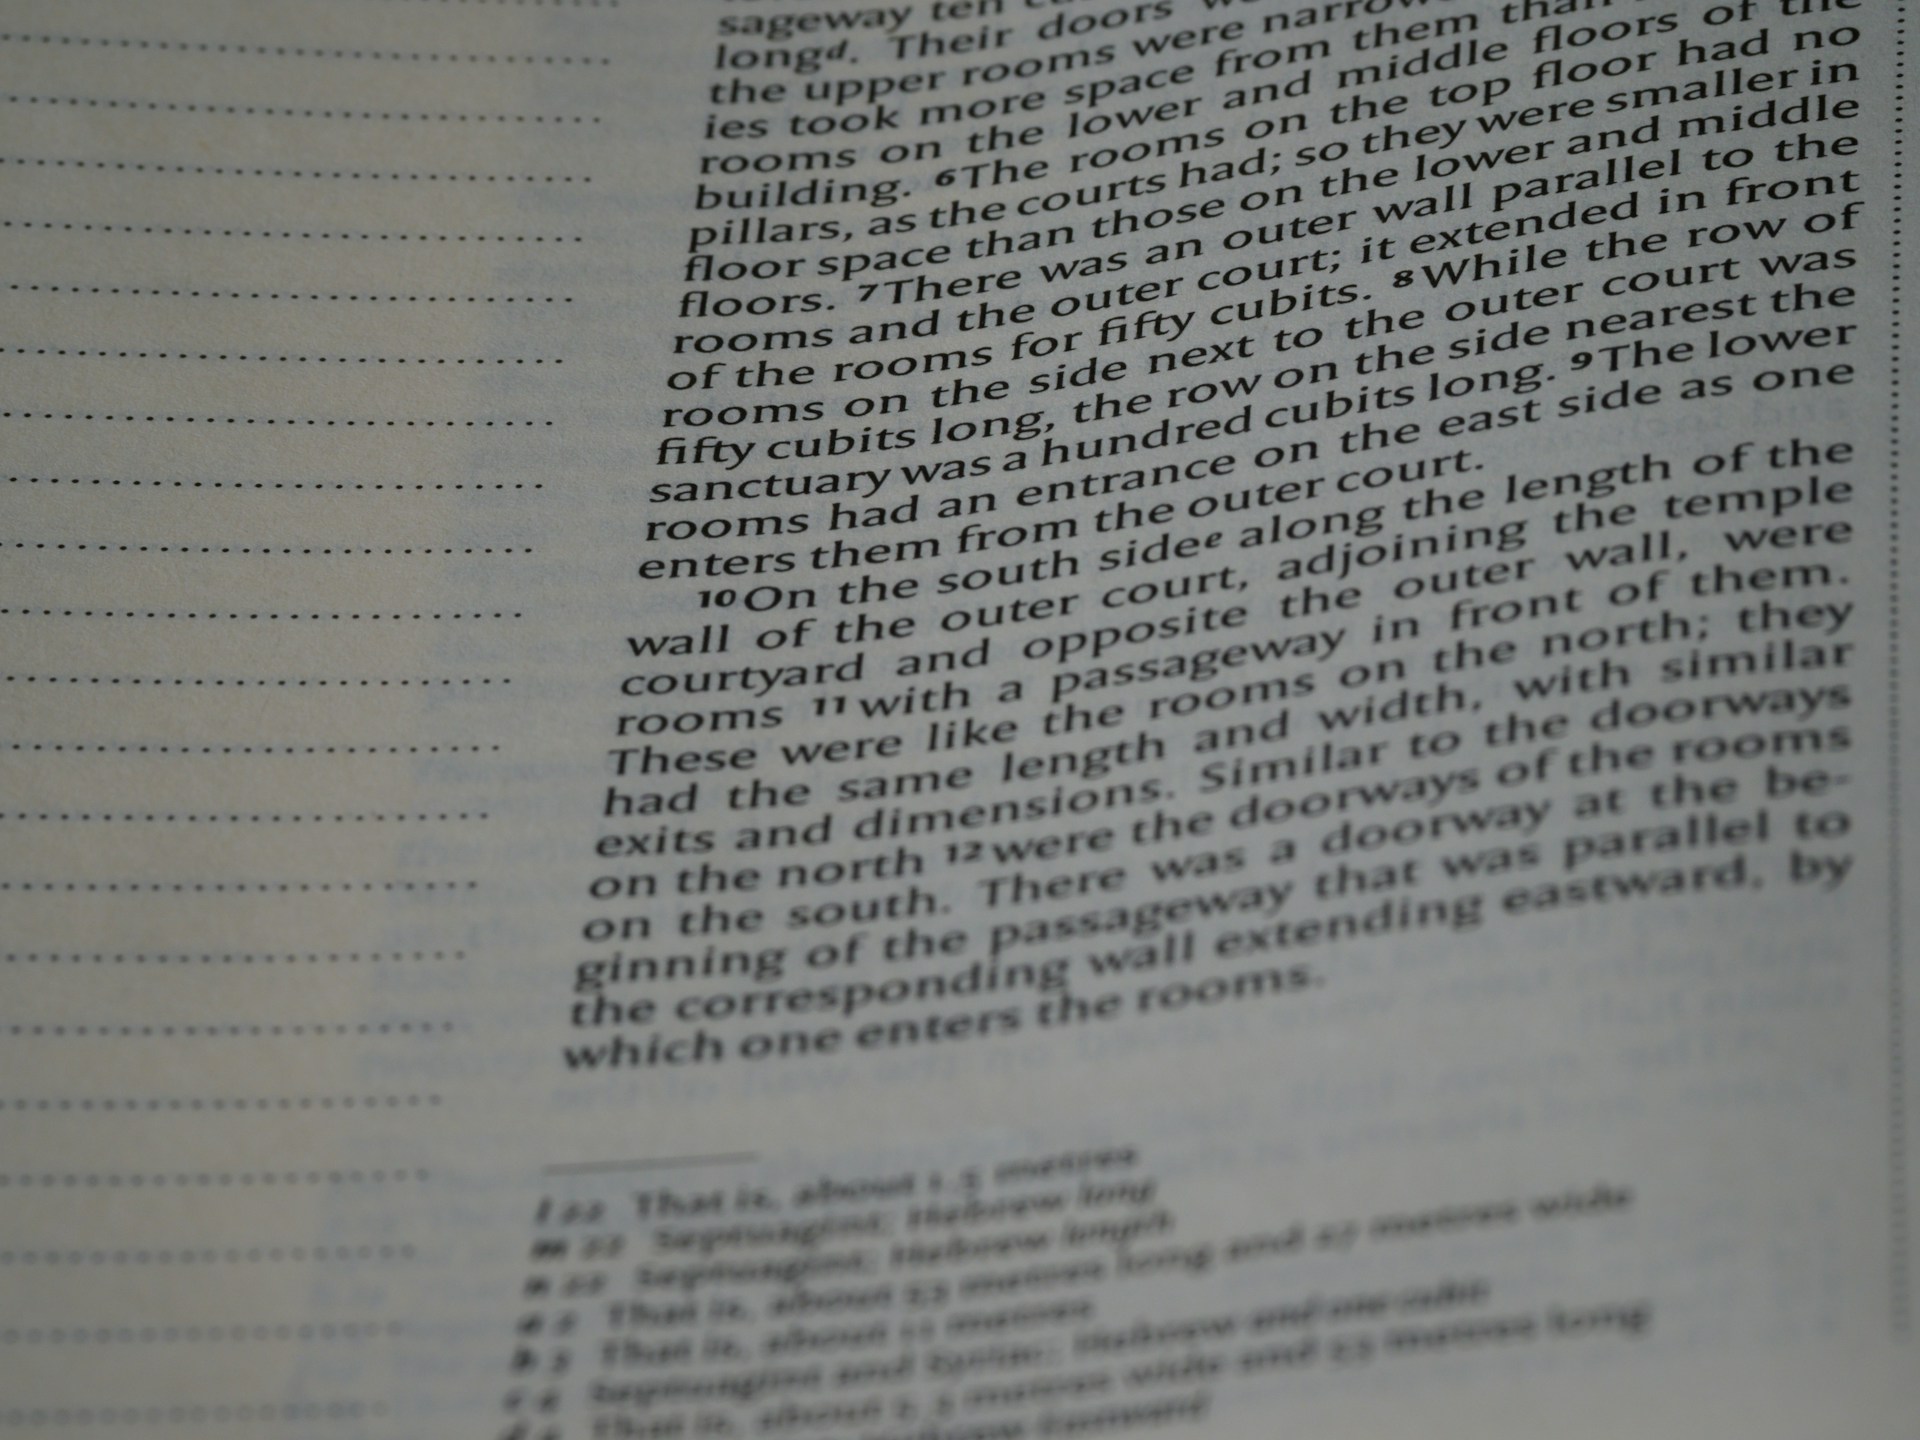 sageway ten
longd. Their doors
the upper rooms were narrow
ies took more space from them than
rooms on the lower and middle floors of the
building. 6The rooms on the top floor had no
pillars, as the courts had; so they were smaller in
floor space than those on the lower and middle
floors. 7There was an outer wall parallel to the
rooms and the outer court; it extended in front
of the rooms for fifty cubits. 8While the row of
rooms on the side next to the outer court was
fifty cubits long, the row on the side nearest the
sanctuary was a hundred cubits long. 9The lower
rooms had an entrance on the east side as one
enters them from the outer court.
10On the south sidee along the length of the
wall of the outer court, adjoining the temple
courtyard and opposite the outer wall, were
rooms 11with a passageway in front of them.
These were like the rooms on the north; they
had the same length and width, with similar
exits and dimensions. Similar to the doorways
on the north 12were the doorways of the rooms
on the south. There was a doorway at the be-
ginning of the passageway that was parallel to
the corresponding wall extending eastward, by
which one enters the rooms.
l 22 That is, about 1.5 metres
m 22 Septuagint; Hebrew long
n 22 Septuagint; Hebrew length
a 2 That is, about 53 metres long and 27 metres wide
b 3 That is, about 11 metres
c 4 Septuagint and Syriac; Hebrew and one cubit
d 4 That is, about 5.3 metres wide and 53 metres long
Hebrew Eastward